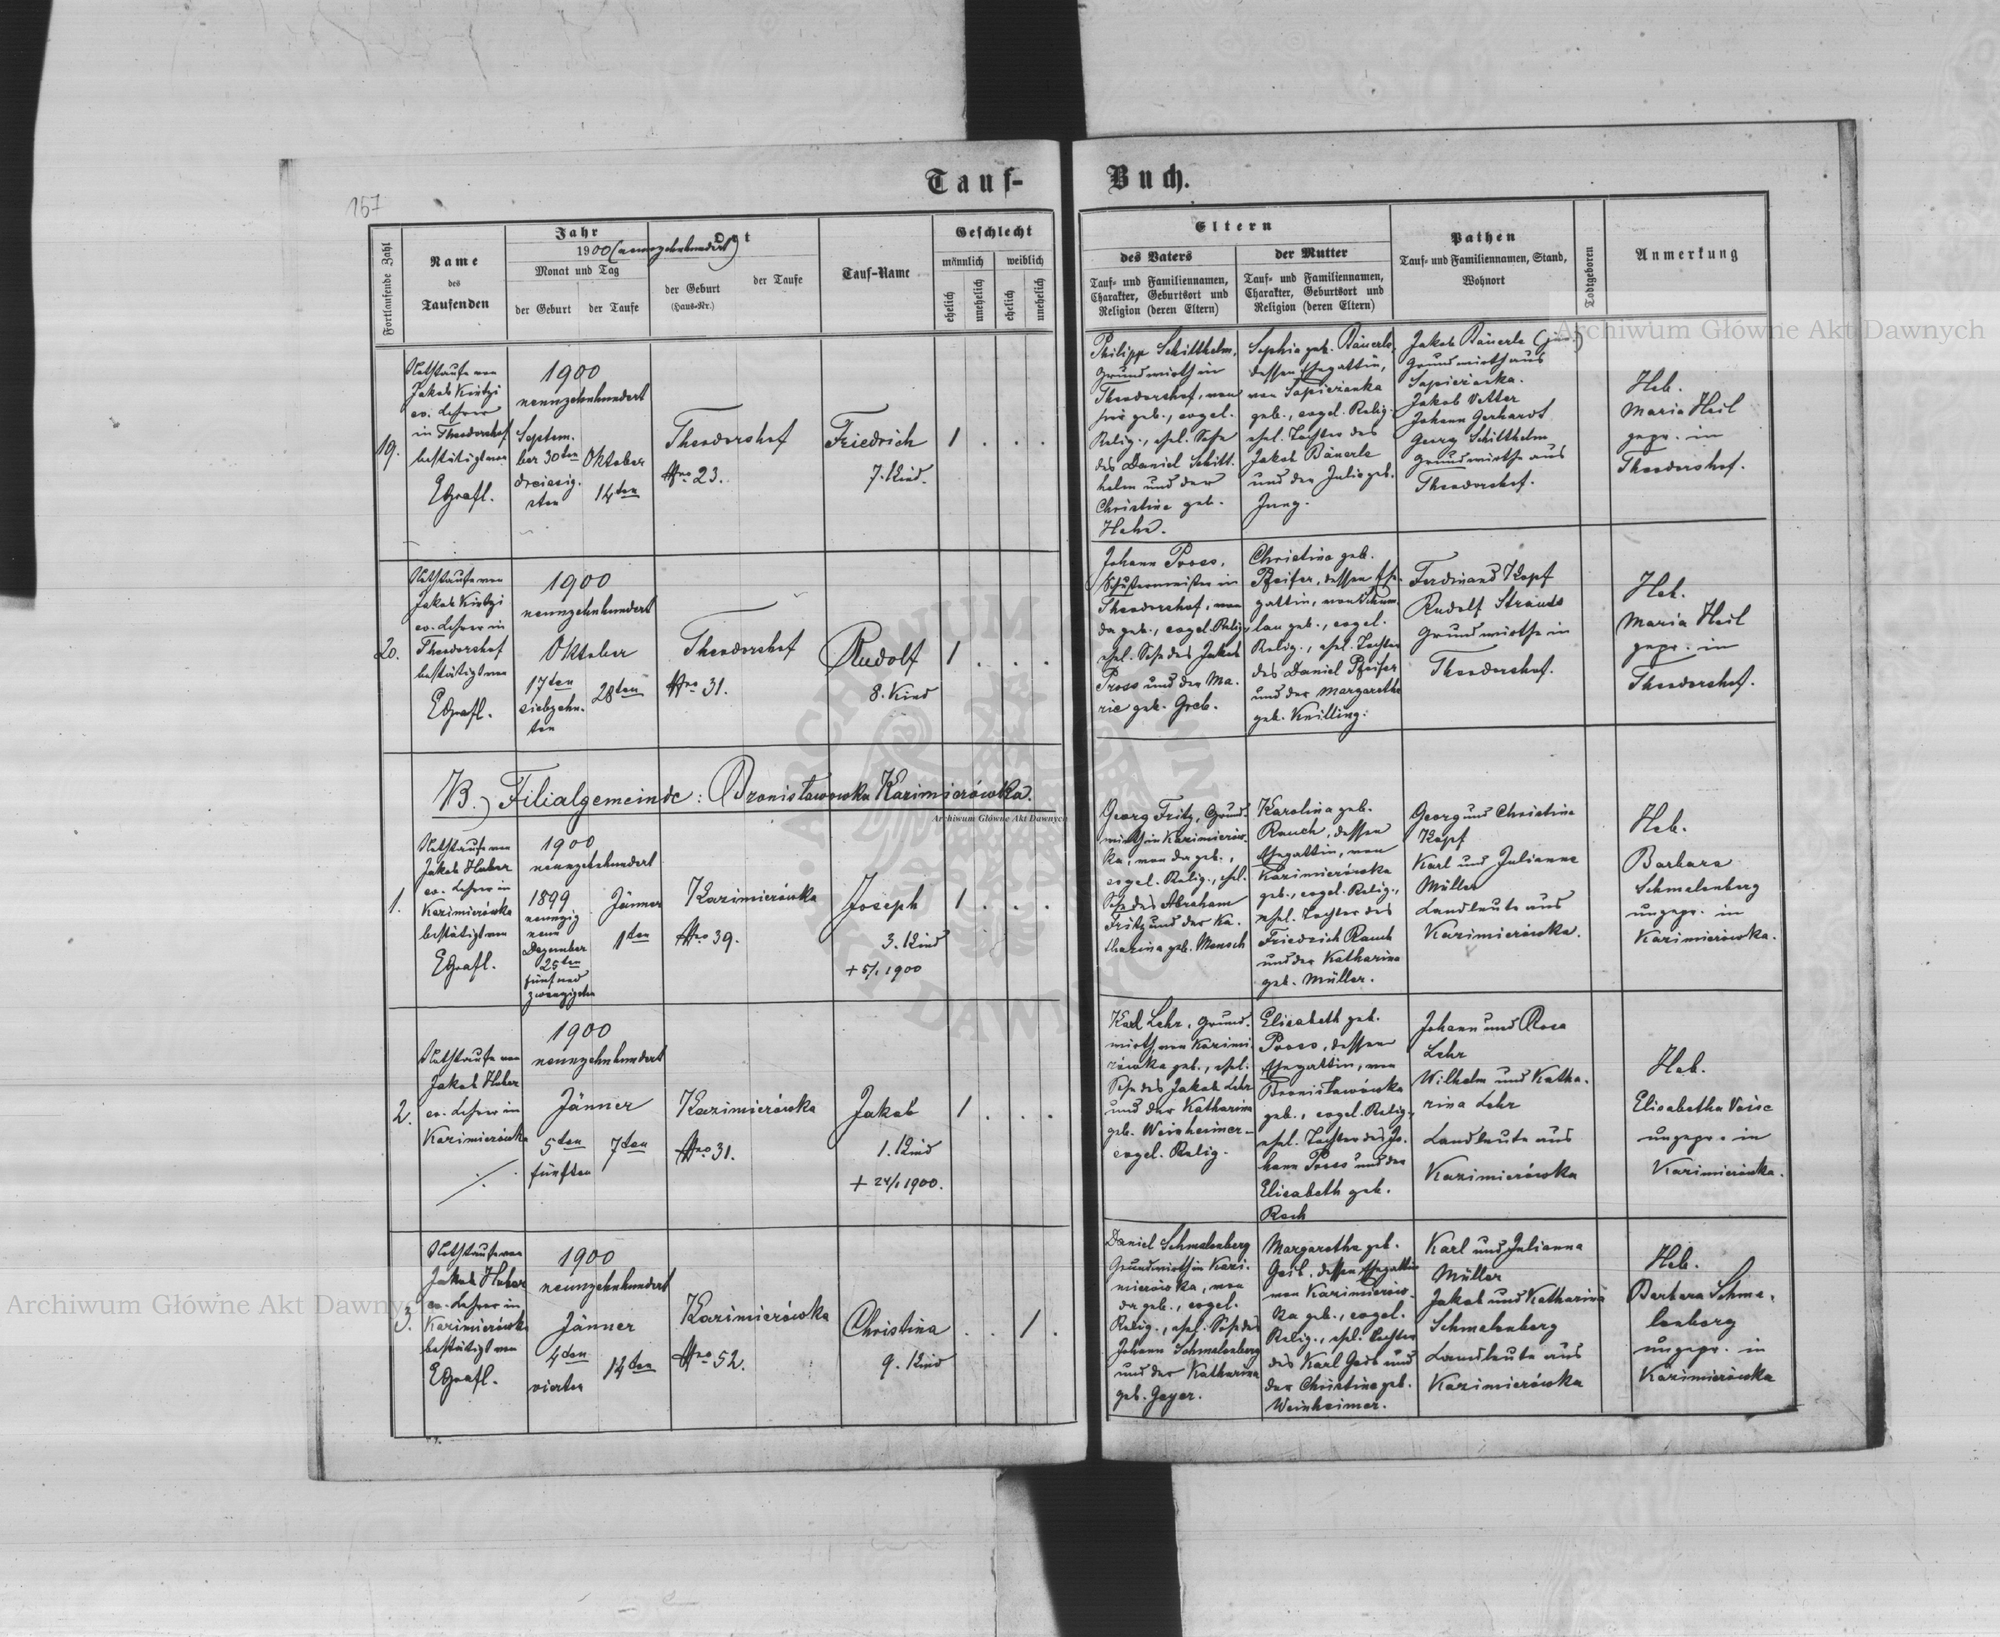 157
Tauf-
Buch.
Fortlaufende Zahl
Name
des
Taufenden
Jahr
1900 (neunzehnhundert)
Monat und Tag
der Geburt
der Taufe
Ort
der Geburt
(Haus-Nr.)
der Taufe
Tauf-Name
Geschlecht
männlich
weiblich
ehelich
unehelich
ehelich
unehelich
Eltern
des Vaters
Tauf- und Familiennamen,
Charakter, Geburtsort und
Religion (deren Eltern)
der Mutter
Tauf- und Familiennamen,
Charakter, Geburtsort und
Religion (deren Eltern)
Pathen
Tauf- und Familiennamen, Stand,
Wohnort
Todtgeboren
Anmerkung
19.
Nothtaufe von
Jakob
ev. Lehrer
in Theodorshof
bestätigt von
1900
neunzehnhundert
Septem.
ber 30ten
dreissig.
sten
Oktober
14ten
Theodorshof
Nro 23.
Friedrich
7. Kind.
1 . . .
Philipp Schitthelm,
Grundwirth in
Theodorshof, von
hie geb., evgel.
Relig., ehel. Sohn
des Daniel Schitt.
helm und der
Christine geb.
Hehn.
Sophia geb. Bäuerle,
dessen Ehegattin,
von Sapiezanka
geb., evgel. Relig.
ehel. Tochter des
Jakob Bäuerle
und der Julie geb.
Jung.
Jakob Bäuerle (jun.)
Grundwirth aus
Sapiezanka.
Jakob Vetter
Johann Gerhardt
Georg Schitthelm
Grundwirthe aus
Theodorshof.
Heb.
Maria Heil
gepr. in
Theodorshof.
20.
Nothtaufe von
Jakob
ev. Lehrer in
Theodorshof
bestätigt von
1900
neunzehnhundert
Oktober
17ten
siebzehn.
ten
28ten
Theodorshof
Nro 31.
Rudolf
8. Kind
1 . . .
Johann Pross,
Schustermeister in
Theodorshof, von
da geb., evgel. Relig.
ehel. Sohn des Jakob
Pross und der Ma.
rie geb. Greb.
Christina geb.
Pfeifer, dessen Ehe.
gattin, von
lau geb., evgel.
Relig., ehel. Tochter
des Daniel Pfeifer
und der Margarethe
geb. Knilling.
Ferdinand Kopf
Rudolf Strauss
Grundwirthe in
Theodorshof.
Heb.
Maria Heil
gepr. in
Theodorshof.
B.) Filialgemeinde: Bronisławowka Kazimierówka.
1.
Nothtaufe von
Jakob Huber
ev. Lehrer in
Kazimierówka
bestätigt von
1900
neunzehnhundert
1899
neunzig
neun
Dezember
25ten
fünf und
zwanzigsten
Jänner
1ten
Kazimierówka
Nro 39.
Joseph
3. Kind
+ 5/1 1900
1 . . .
Georg Fritz, Grund.
wirth in Kazimierów.
ka, von da geb.,
evgel. Relig., ehel.
Sohn des Abraham
Fritz und der Ka.
tharina geb. Mensch
Karolina geb.
Rauch, dessen
Ehegattin, von
Kazimierówka
geb., evgel. Relig.,
ehel. Tochter des
Friedrich Rauch
und der Katharina
geb. Müller.
Georg und Christine
Kopf
Karl und Julianne
Müller
Landleute aus
Kazimierówka.
Heb.
Barbara
Schmalenberg
ungepr. in
Kazimierówka.
2.
Nothtaufe von
Jakob Huber
ev. Lehrer in
Kazimierówka
1900
neunzehnhundert
Jänner
5ten
fünften
7ten
Kazimierówka
Nro 31.
Jakob
1. Kind
+ 24/1 1900.
1 . . .
Karl Lehr, Grund.
wirth von Kazimi.
rówka geb., ehel.
Sohn des Jakob Lehr
und der Katharina
geb. Weinheimer.
evgel. Relig.
Elisabeth geb.
Pross, dessen
Ehegattin, von
Bronisławówka
geb., evgel. Relig.,
ehel. Tochter des Jo.
hann Pross und der
Elisabeth geb.
Rech
Johann und Rosa
Lehr
Wilhelm und Katha.
rina Lehr
Landleute aus
Kazimierówka
Heb.
Elisabetha Voise
ungepr. in
Kazimierówka.
3.
Nothtaufe von
Jakob Huber
ev. Lehrer in
Kazimierówka
bestätigt von
1900
neunzehnhundert
Jänner
4ten
vierten
14ten
Kazimierówka
Nro 52.
Christina
9. Kind
. . 1 .
Daniel Schmalenberg
Grundwirth in Kazi.
mierówka, von
da geb., evgel.
Relig., ehel. Sohn des
Johann Schmalenberg
und der Katharina
geb. Geyer.
Margaretha geb.
Geib, dessen Ehegattin
von Kazimierów.
ka geb., evgel.
Relig., ehel. Tochter
des Karl Geib und
der Christine geb.
Weinheimer.
Karl und Julianna
Müller
Jakob und Katharina
Schmalenberg
Landleute aus
Kazimierówka
Heb.
Barbara Schma.
lenberg
ungepr. in
Kazimierówka
Archiwum Główne Akt Dawnych
Archiwum Główne Akt Dawnych
Archiwum Główne Akt Dawnych
ARCHIWUM GŁÓWNE AKT DAWNYCH